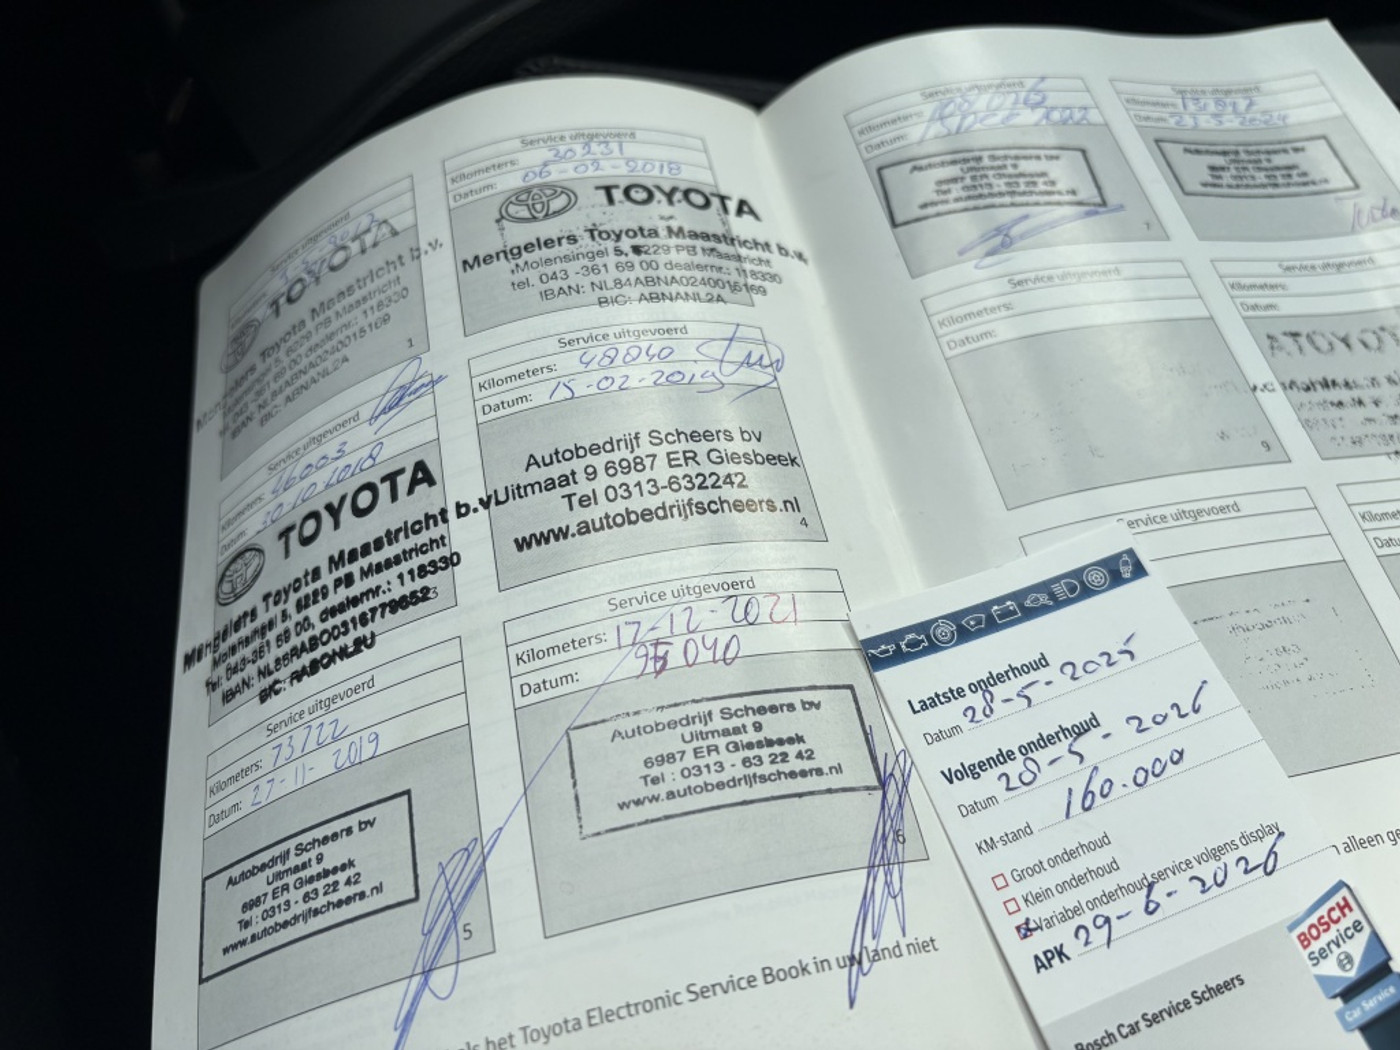 Service uitgevoerd
TOYOTA
Toyota Maastricht b.v.
6229 PB Maastricht
dealernr.: 118330
IBAN: NL84ABNA0240015169
BIC: ABNANL2A
1
Service uitgevoerd
Kilometers: 30231
Datum: 06-02-2018
TOYOTA
Mengelers Toyota Maastricht b.v.
Molensingel 5, 6229 PB Maastricht
tel. 043 -361 69 00 dealernr.: 118330
IBAN: NL84ABNA0240015169
BIC: ABNANL2A
Service uitgevoerd
Kilometers: 46003
Datum: 30-10-2018
TOYOTA
Mengelers Toyota Maastricht b.v.
Molensingel 5, 6229 PB Maastricht
Tel: 043-361 69 00, dealernr.: 118330
IBAN: NL86RABO0316779652
BIC: RABONL2U
3
Service uitgevoerd
Kilometers: 48840
Datum: 15-02-2019
Autobedrijf Scheers bv
Uitmaat 9 6987 ER Giesbeek
Tel 0313-632242
www.autobedrijfscheers.nl
4
Service uitgevoerd
Kilometers: 73722
Datum: 27-11-2019
Autobedrijf Scheers bv
Uitmaat 9
6987 ER Giesbeek
Tel : 0313 - 63 22 42
www.autobedrijfscheers.nl
5
Service uitgevoerd
Kilometers: 17-12-2021
Datum: 95040
Autobedrijf Scheers bv
Uitmaat 9
6987 ER Giesbeek
Tel : 0313 - 63 22 42
www.autobedrijfscheers.nl
6
het Toyota Electronic Service Book in uw land niet
Service uitgevoerd
Kilometers:
Datum: 2022
Autobedrijf Scheers bv
Uitmaat 9
6987 ER Giesbeek
Tel : 0313 - 63 22 42
www.autobedrijfscheers.nl
7
Service uitgevoerd
Kilometers:
Datum: 23-5-2024
Autobedrijf Scheers bv
Uitmaat 9
6987 ER Giesbeek
Tel : 0313 - 63 22 42
www.autobedrijfscheers.nl
Service uitgevoerd
Kilometers:
Datum:
9
Service uitgevoerd
Kilometers:
Datum:
Service uitgevoerd
alleen
Laatste onderhoud
Datum 28-5-2025
Volgende onderhoud
Datum 28-5-2026
KM-stand 160.000
Groot onderhoud
Klein onderhoud
Variabel onderhoud service volgens display
APK 29-6-2026
BOSCH
Service
Car Service
Bosch Car Service Scheers